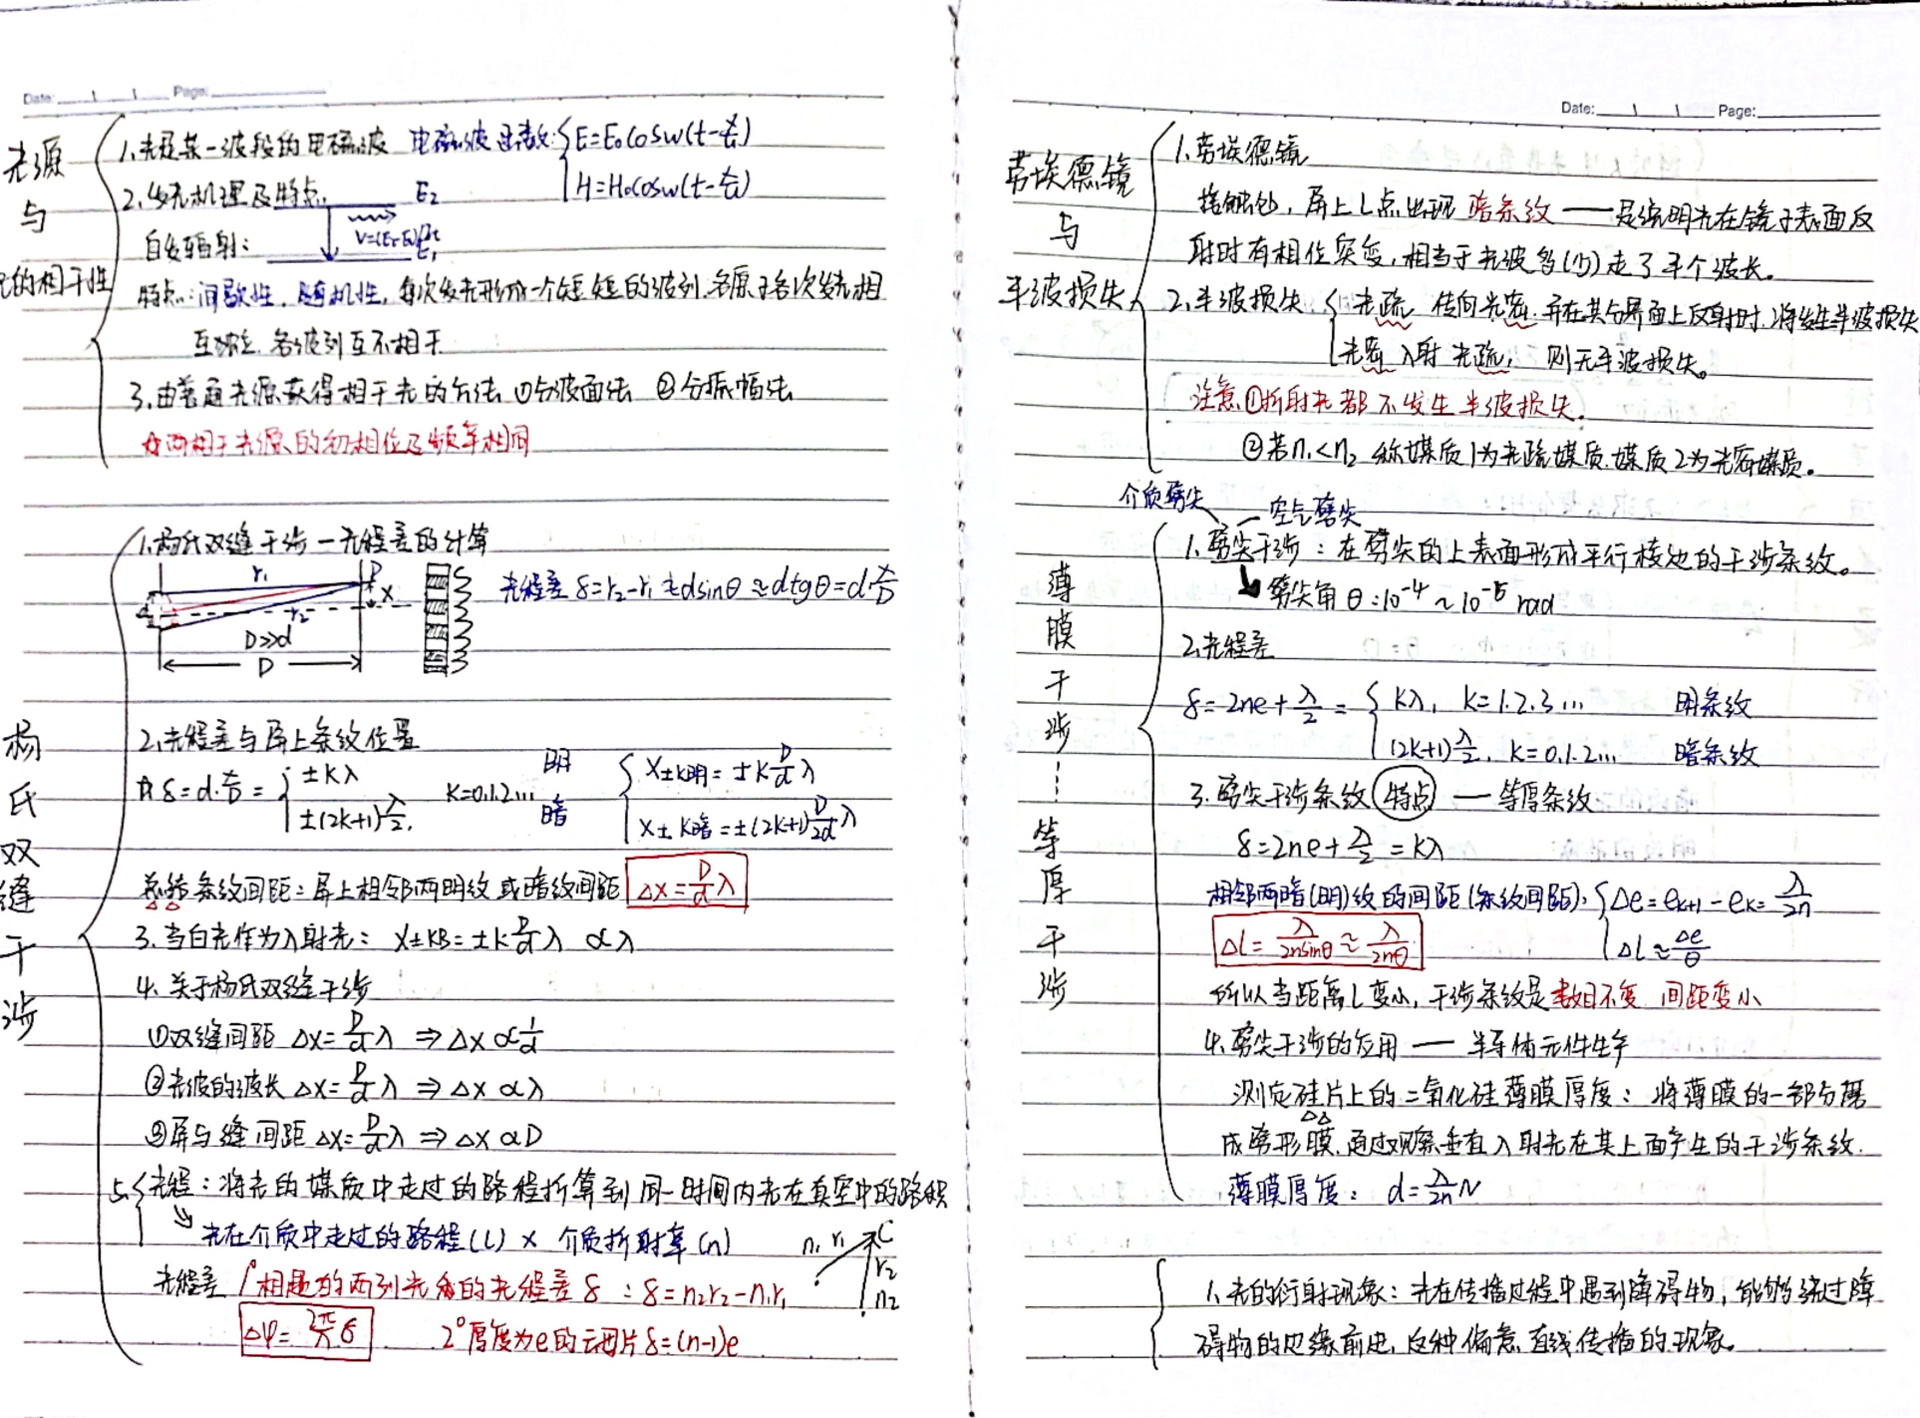 Date: Page:
光源与光的相干性
1.光是某一波段的电磁波 电磁波函数: E=E₀cosw(t-x/u)
H=H₀cosw(t-x/u)
2.发光机理及特点. E₂
自发辐射: ν=(E₂-E₁)/h E₁
特点:间歇性.随机性,每次发光形成一个短短的波列.各原子各次发光相
互独立.各波列互不相干
3.由普通光源获得相干光的方法 ①分波面法 ②分振幅法
☆两相干光源的初相位及频率相同
杨氏双缝干涉
1.杨氏双缝干涉—光程差的计算
r₁ P x r₂ d D≫d D
光程差 δ=r₂-r₁≈dsinθ≈dtgθ=d·x/D
2.光程差与屏上条纹位置
δ=d·x/D= ±kλ
±(2k+1)λ/2,
k=0.1.2... 明
暗
X±k明=±k D/d λ
X±k暗=±(2k+1)D/2d λ
条纹间距:屏上相邻两明纹或暗纹间距 Δx=D/d λ
3.当白光作为入射光: X±kB=±k D/d λ ∝λ
4.关于杨氏双缝干涉
①双缝间距 Δx=D/d λ ⇒Δx∝1/d
②光波的波长 Δx=D/d λ ⇒Δx∝λ
③屏与缝间距 Δx=D/d λ ⇒Δx∝D
5.光程:将光的媒质中走过的路程折算到同一时间内光在真空中的路程
光在介质中走过的路程(L)×介质折射率(n)
n₁ r₁ C r₂ n₂
光程差 1°相遇的两列光的光程差δ:δ=n₂r₂-n₁r₁
Δφ=2π/λ δ 2°厚度为e的云母片δ=(n-1)e
Date: Page:
劳埃德镜与半波损失
1.劳埃德镜
接触处,屏上L点出现暗条纹——是说明光在镜子表面反
射时有相位突变,相当于光波多(少)走了半个波长。
2.半波损失 光疏 传向光密.并在其分界面上反射时.将发生半波损失
光密 入射 光疏, 则无半波损失。
注意①折射光都不发生半波损失.
②若n₁<n₂ 称媒质1为光疏媒质.媒质2为光密媒质。
薄膜干涉……等厚干涉
介质劈尖 空气劈尖
1.劈尖干涉:在劈尖的上表面形成平行棱边的干涉条纹。
劈尖角θ:10⁻⁴~10⁻⁵ rad
2.光程差
δ=2ne+λ/2= kλ, k=1.2.3... 明条纹
(2k+1)λ/2, k=0.1.2... 暗条纹
3.劈尖干涉条纹特点—等厚条纹
δ=2ne+λ/2=kλ
相邻两暗(明)纹的间距(条纹间距): Δe=eₖ₊₁-eₖ=λ/2n
Δl=λ/2nsinθ≈λ/2nθ Δl≈Δe/θ
所以当距离L变小,干涉条纹是数目不变 间距变小
4.劈尖干涉的应用—半导体元件生产
测定硅片上的二氧化硅薄膜厚度:将薄膜的一部分磨
成劈形膜.通过观察垂直入射光在其上面产生的干涉条纹.
薄膜厚度: d=λ/2n N
1.光的衍射现象:光在传播过程中遇到障碍物,能够绕过障
碍物的边缘前进,这种偏离直线传播的现象。